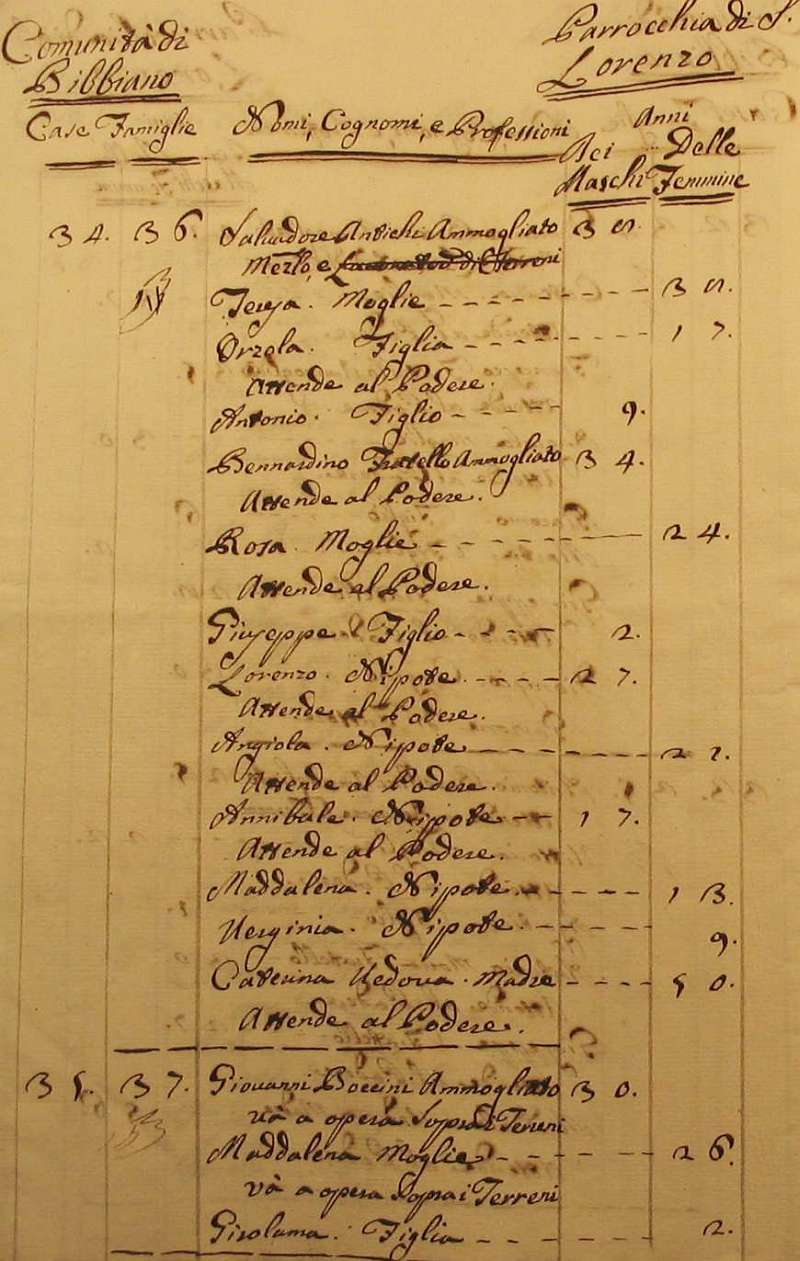 Comunità di
Bibbiano
Parrocchia di S.
Lorenzo
Case Famiglie Nomi, Cognomi, e Professioni
Anni
Dei Delle
Maschi Femmine
34. 36. Salvadore Antichi Ammogliato
e
Teresa. Moglie
Orzola. Figlia 17.
Attende al Podere.
Antonio. Figlio 9.
Bernardino Fratello Ammogliato 34.
Attende al Podere.
Rosa. Moglie 24.
Attende al Podere.
Giuseppe. Figlio 2.
Lorenzo. Nipote 27.
Attende al Podere.
Angiola. Nipote 21.
Attende al Podere.
Annibale. Nipote 17.
Attende al Podere.
Maddalena. Nipote 13.
Verginia. Nipote 9.
Caterina Vedova. Madre 50.
Attende al Podere.
35. 37. Giovanni Boccini Ammogliato 30.
và a opera Sopra i Terreni
Maddalena Moglie 26.
và a opera Sopra i Terreni
Girolama. Figlia 2.